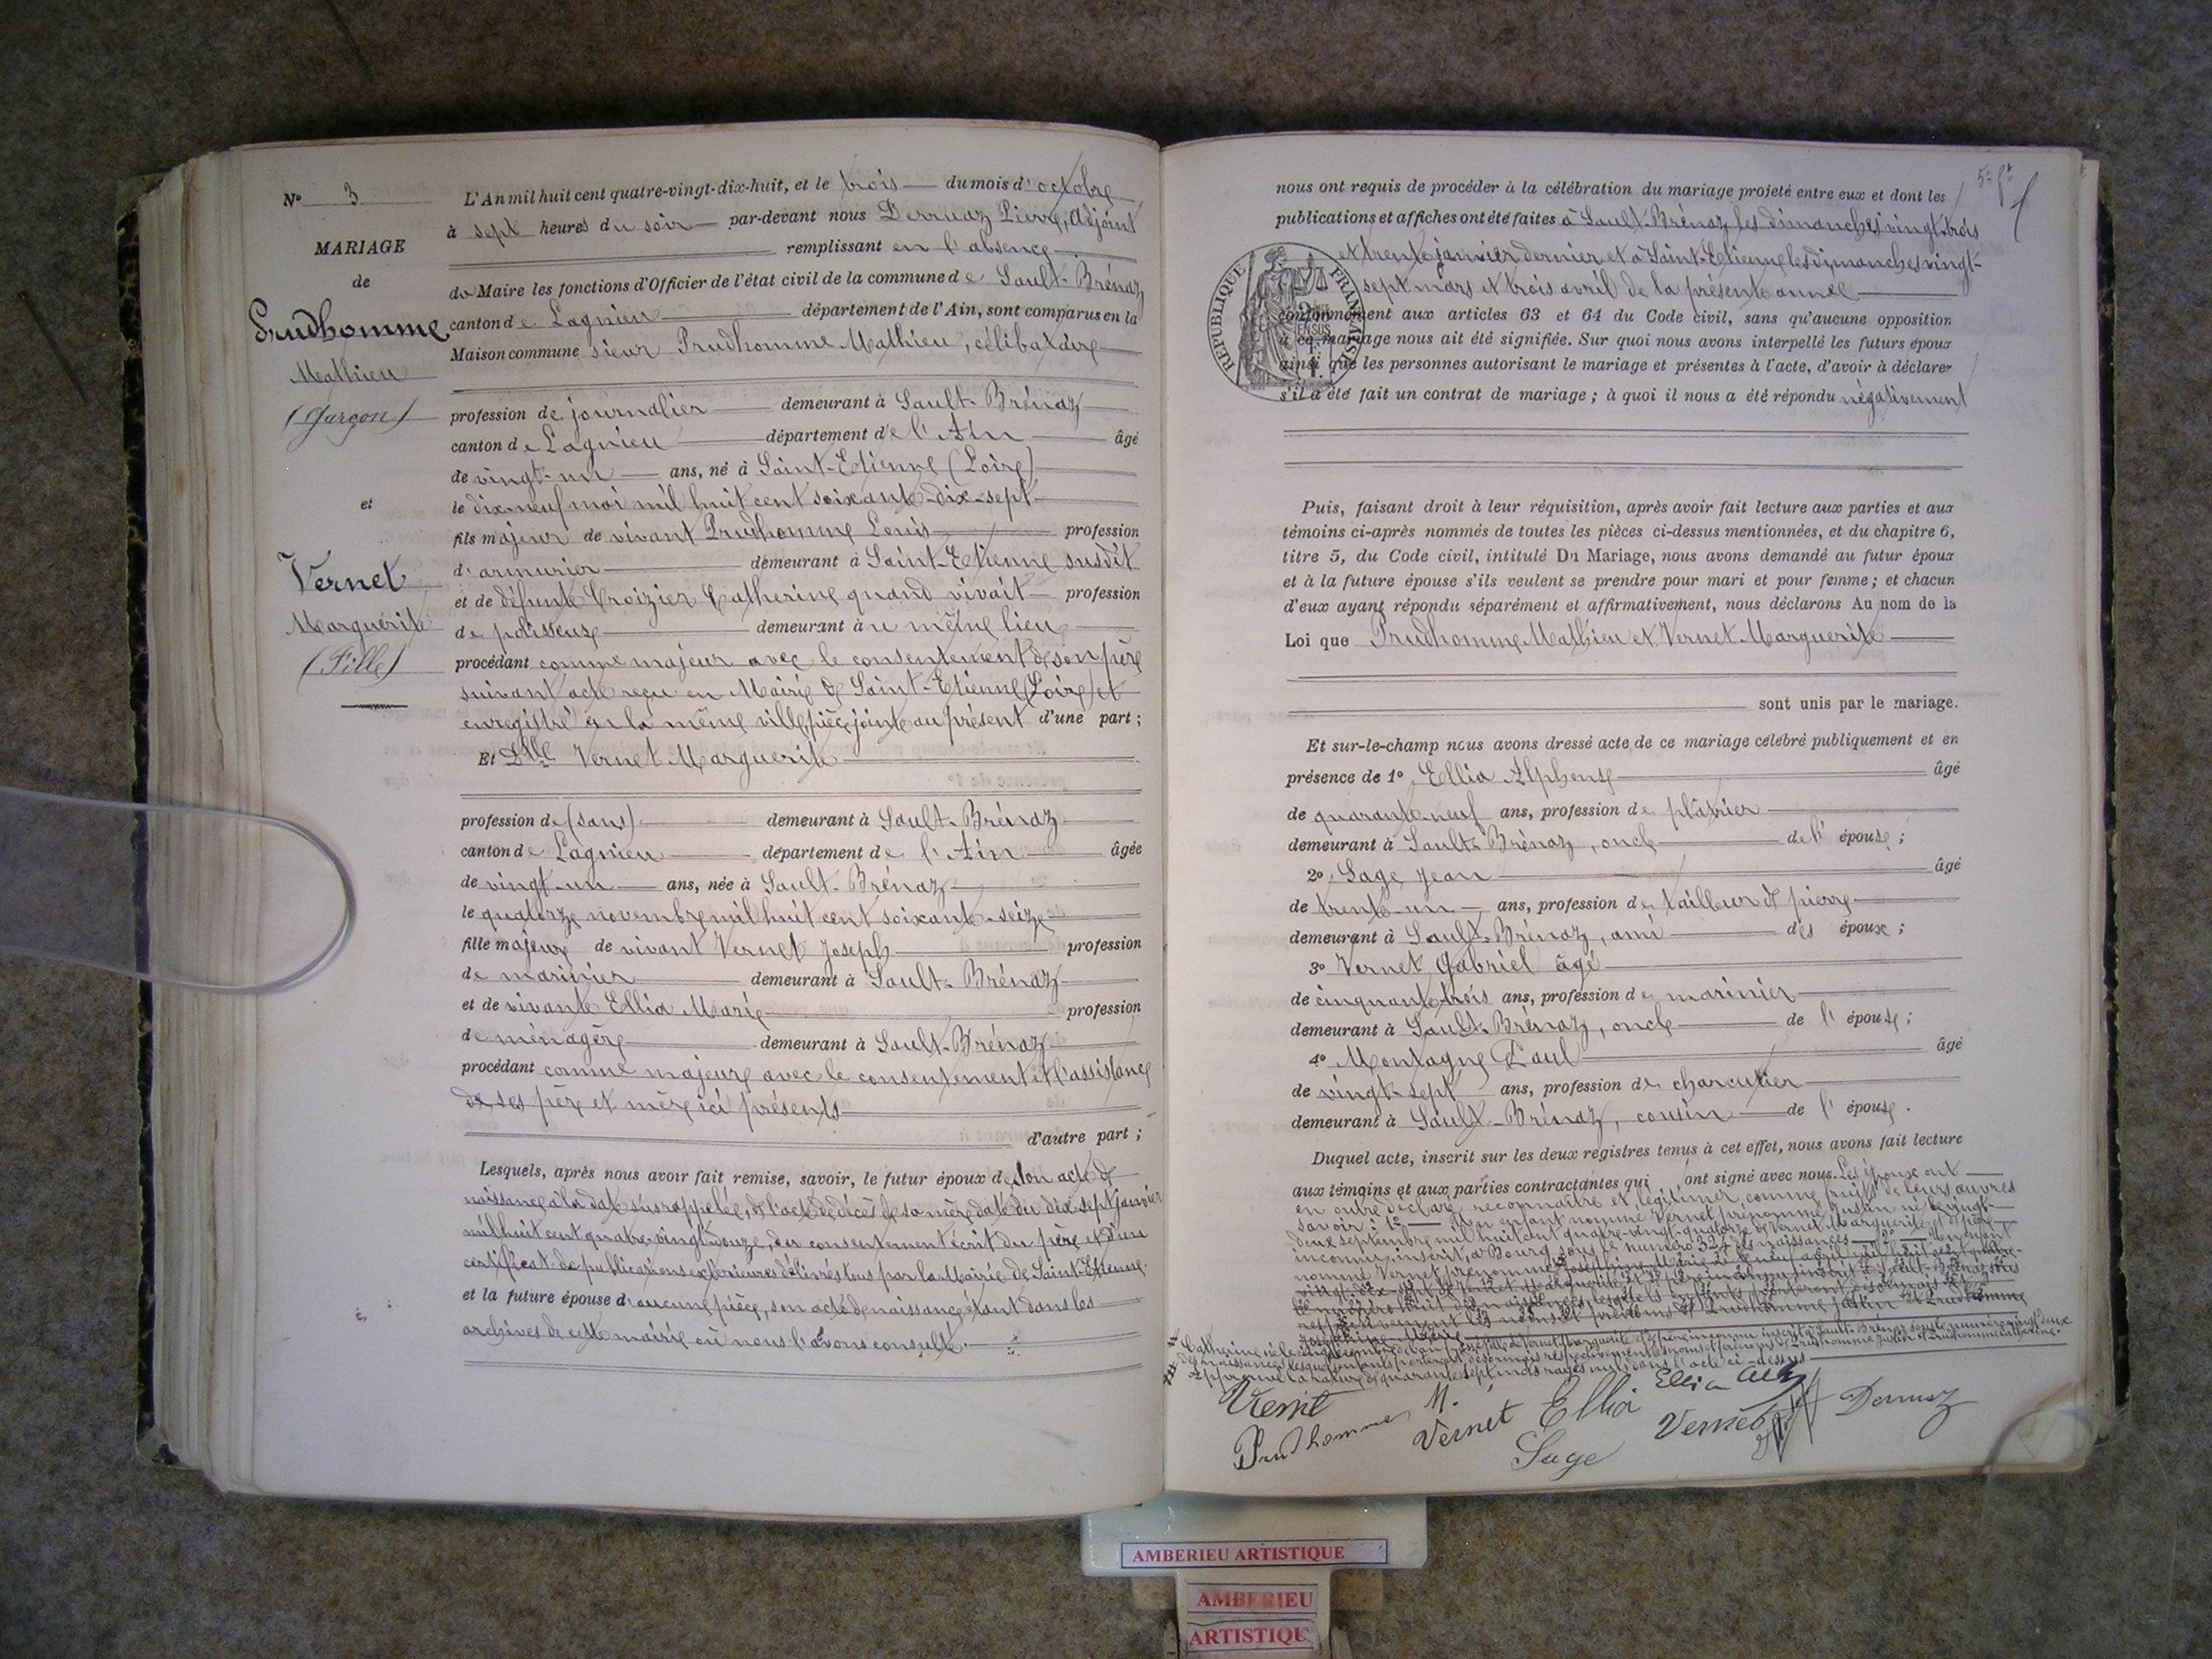 N° 3
MARIAGE
de
Prudhomme
Mathieu
(Garçon)
et
Vernet
Marguerite
(Fille)
L'An mil huit cent quatre-vingt-dix-huit, et le trois du mois d'octobre
à sept heures du soir par-devant nous Derruaz Pierre, Adjoint
remplissant en l'absence
du Maire les fonctions d'Officier de l'état civil de la commune de Sault-Brénaz
canton de Lagnieu département de l'Ain, sont comparus en la
Maison commune sieur Prudhomme Mathieu, célibataire
profession de journalier demeurant à Sault-Brénaz
canton de Lagnieu département de l'Ain âgé
de vingt-un ans, né à Saint-Etienne (Loire)
le dix-neuf mai mil huit cent soixante-dix-sept
fils majeur de vivant Prudhomme Louis profession
d'armurier demeurant à Saint-Etienne susdit
et de défunte Croizier Catherine quand vivait profession
de polisseuse demeurant à u même lieu
procédant comme majeur avec le consentement de son père
suivant acte reçu en Mairie de Saint-Etienne (Loire) et
enregistré en la même ville pièce jointe au présent d'une part;
Et Dlle Vernet Marguerite
profession de (sans) demeurant à Sault-Brénaz
canton de Lagnieu département de l'Ain âgée
de vingt-un ans, née à Sault-Brénaz
le quatorze novembre mil huit cent soixante-seize
fille majeure de vivant Vernet Joseph profession
de marinier demeurant à Sault-Brénaz
et de vivante Ellia Marie profession
de ménagère demeurant à Sault-Brénaz
procédant comme majeure avec le consentement et l'assistance
de ses père et mère ici présents
d'autre part;
Lesquels, après nous avoir fait remise, savoir, le futur époux de son acte de
naissance à la date susrappelée, de l'acte de décès de sa mère daté du dix-sept janvier
mil huit cent quatre-vingt-douze, du consentement écrit du père et d'un
certificat de publications extérieures délivrés tous par la Mairie de Saint-Etienne.
et la future épouse d'aucune pièce, son acte de naissance étant dans les
archives de cette mairie où nous l'avons consulté.
5e ft
nous ont requis de procéder à la célébration du mariage projeté entre eux et dont les
publications et affiches ont été faites à Sault-Brénaz les dimanches vingt-trois
et trente janvier dernier et à Saint-Etienne les dimanches vingt-
sept mars et trois avril de la présente année
REPUBLIQUE FRANÇAISE
conformément aux articles 63 et 64 du Code civil, sans qu'aucune opposition
à ce mariage nous ait été signifiée. Sur quoi nous avons interpellé les futurs époux
ainsi que les personnes autorisant le mariage et présentes à l'acte, d'avoir à déclarer
s'il a été fait un contrat de mariage; à quoi il nous a été répondu négativement
Puis, faisant droit à leur réquisition, après avoir fait lecture aux parties et aux
témoins ci-après nommés de toutes les pièces ci-dessus mentionnées, et du chapitre 6,
titre 5, du Code civil, intitulé Du Mariage, nous avons demandé au futur époux
et à la future épouse s'ils veulent se prendre pour mari et pour femme; et chacun
d'eux ayant répondu séparément et affirmativement, nous déclarons Au nom de la
Loi que Prudhomme Mathieu et Vernet Marguerite
sont unis par le mariage.
Et sur-le-champ nous avons dressé acte de ce mariage célébré publiquement et en
présence de 1° Ellia Alphonse âgé
de quarante-neuf ans, profession de plâtrier
demeurant à Sault-Brénaz, oncle de l'épouse;
2° Sage Jean âgé
de trente-un ans, profession de tailleur de pierre
demeurant à Sault-Brénaz, ami des époux;
3° Vernet Gabriel âgé
de cinquante-trois ans, profession de marinier
demeurant à Sault-Brénaz, oncle de l'épouse;
4° Montagne Paul âgé
de vingt-sept ans, profession de charcutier
demeurant à Sault-Brénaz, cousin de l'épouse.
Duquel acte, inscrit sur les deux registres tenus à cet effet, nous avons fait lecture
aux témoins et aux parties contractantes qui ont signé avec nous. Les époux ont
en outre déclaré reconnaître et légitimer comme fruits de leurs œuvres
savoir: 1° Un enfant nommé Vernet prénommé Justin né le vingt-
deux septembre mil huit cent quatre-vingt-quatorze de Vernet Marguerite et de père
inconnu, inscrit à Bourg sous le numéro 324 des naissances 2° Un enfant
nommé Vernet prénommé Joséphine Marie né le neuf avril mil huit cent quatre-
vingt-dix-sept de Vernet Marguerite et de père inconnu inscrit à Sault-Brénaz sous
le numéro huit des naissances lesquels enfants porteront désormais
respectivement les noms et prénoms de Prudhomme Justin et Prudhomme
Joséphine Marie
Catherine née le de Vernet Marguerite et de père inconnu inscrit à Sault-Brénaz sous le numéro vingt-deux
des naissances lesquels enfants porteront désormais respectivement les noms et prénoms de Prudhomme Justin et Prudhomme Catherine.
Approuvé la rature de quarante-sept mots rayés nuls dans l'acte ci-dessus
Vernet M. Ellia Ellia Derruaz
Prudhomme Vernet Sage Vernet
AMBERIEU ARTISTIQUE
AMBERIEU
ARTISTIQU